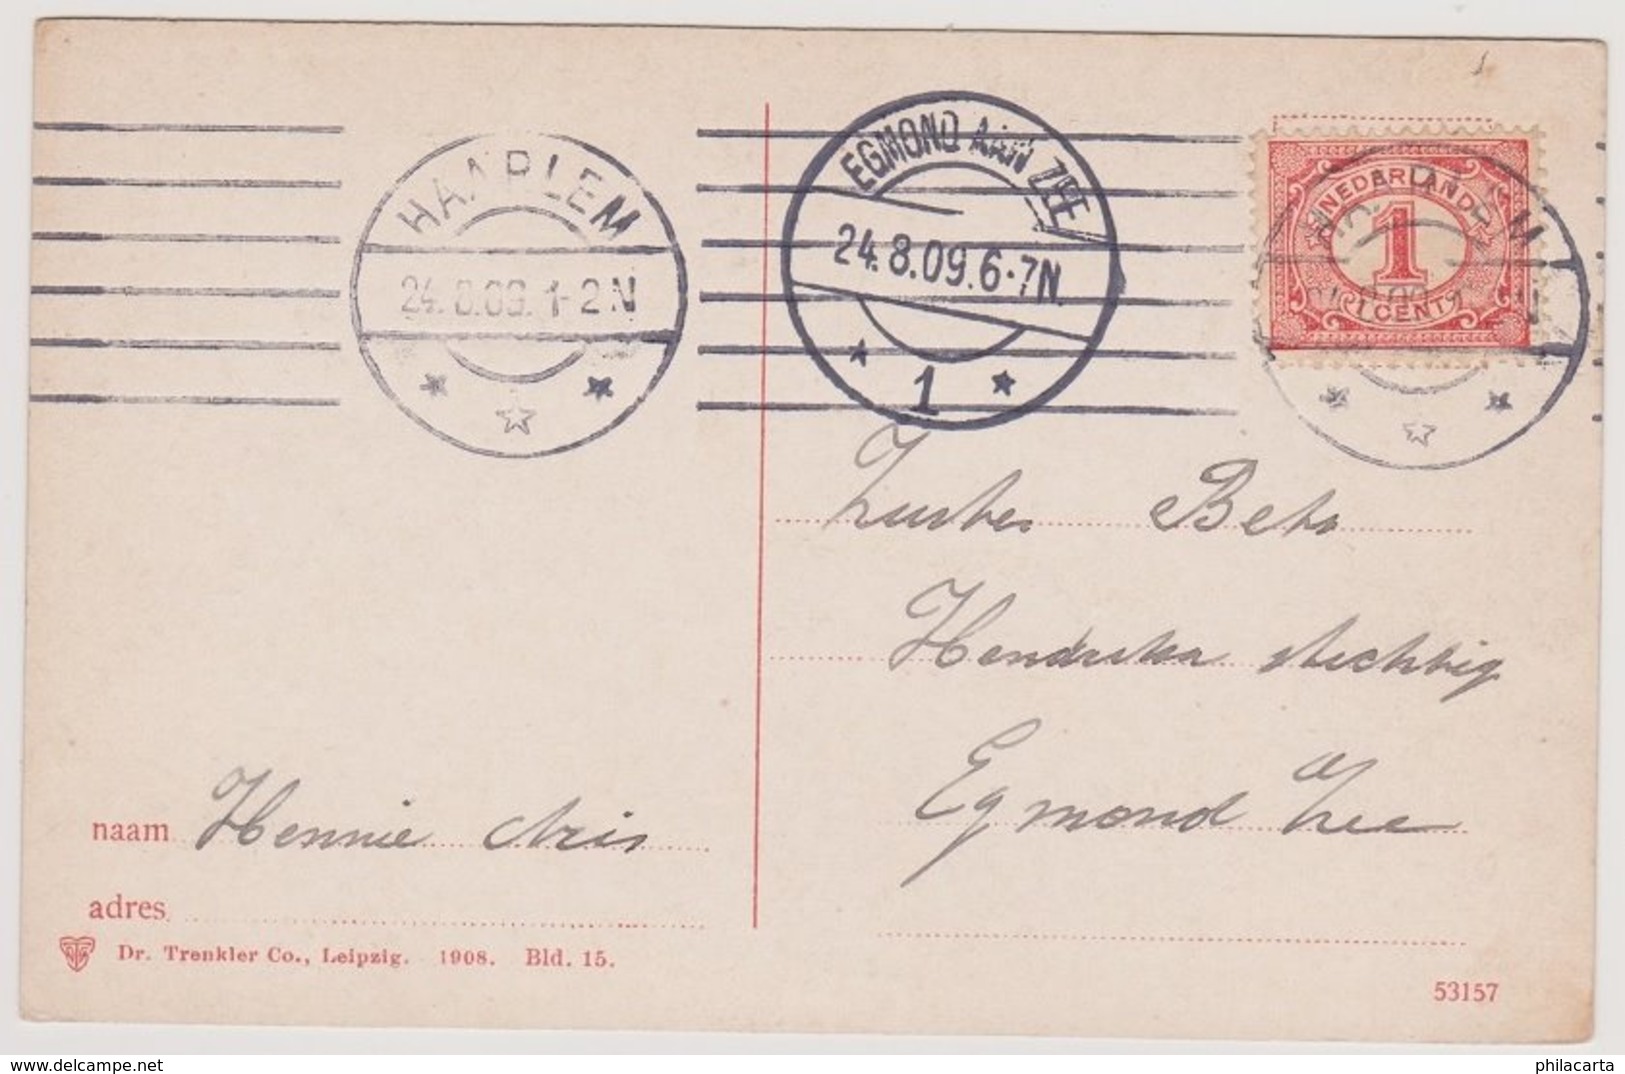 HAARLEM
24.8.09. 1-2N
EGMOND AAN ZEE
24.8.09.6-7N.
1
NEDERLAND
1
1 CENT
Zuster Bets
Hendrika stichting
Egmond a/ Zee
naam Hennie Aris
adres
Dr. Trenkler Co., Leipzig. 1908. Bld. 15.
53157
www.delcampe.net
philacarta